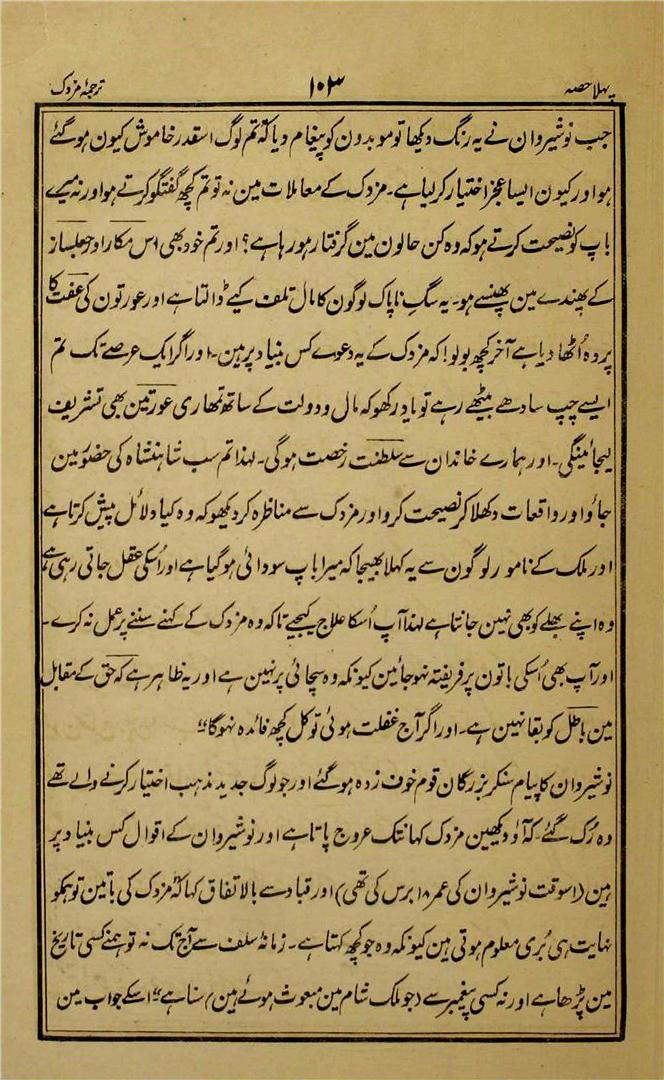 پہلا حصہ ۱۰۳ ترجمۂ مزدک
جب نوشیروان نے یہ رنگ دیکھا تو موبدون کو پیغام دیا کہ "تم لوگ اسقدر خاموش کیون ہو گئے
ہو اور کیون ایسا عجز اختیار کر لیا ہے۔ مزدک کے معاملات مین نہ تو تم کچھ گفتگو کرتے ہو اور نہ میرے
باپ کو نصیحت کرتے ہو کہ وہ کن حالون مین گرفتار ہو رہا ہے؟ اور تم خود بھی اس مکار اور جعلساز
کے پھندے مین پھنسے ہو۔ یہ سگِ ناپاک لوگون کا مال تلف کیے ڈالتا ہے اور عورتون کی عفت کا
پردہ اُٹھا دیا ہے آخر کچھ بولو! کہ مزدک کے یہ دعوے کس بنیاد پر ہین۔ اور اگر ایک عرصے تک تم
ایسے چپ سادھے بیٹھے رہے تو یاد رکھو کہ مال و دولت کے ساتھ تمھاری عورتین بھی تشریف
لیجائینگی۔ اور ہمارے خاندان سے سلطنت رخصت ہوگی۔ لہذا تم سب شاہنشاہ کی حضور مین
جاؤ اور واقعات دکھلا کر نصیحت کرو اور مزدک سے مناظرہ کر دیکھو کہ وہ کیا دلائل پیش کرتا ہے
اور ملک کے نامور لوگون سے یہ کہلا بھیجا کہ میرا باپ سودائی ہو گیا ہے اور اُسکی عقل جاتی رہی ہے
وہ اپنے بھلے کو بھی نہین جانتا ہے لہذا آپ اُسکا علاج کیجیے تاکہ وہ مزدک کے کہنے سننے پر عمل نہ کرے۔
اور آپ بھی اُسکی باتون پر فریفتہ نہو جائین کیونکہ وہ سچائی پر نہین ہے اور یہ ظاہر ہے کہ حق کے مقابل
مین باطل کو بقا نہین ہے۔ اور اگر آج غفلت ہوئی تو کل کچھ فائدہ نہوگا"
نوشیروان کا پیام سنکر بزرگان قوم خوف زدہ ہو گئے اور جو لوگ جدید مذہب اختیار کرنے والے تھے
وہ رُک گئے۔ کہ آؤ دیکھین مزدک کہانتک عروج پاتا ہے اور نوشیروان کے اقوال کس بنیاد پر
ہین (اسوقت نوشیروان کی عمر ۱۸ برس کی تھی) اور قباد سے بالاتفاق کہا کہ "مزدک کی باتین تو ہمکو
نہایت ہی بُری معلوم ہوتی ہین کیونکہ وہ جو کچھ کہتا ہے۔ زمانۂ سلف سے آج تک نہ تو ہمنے کسی تاریخ
مین پڑھا ہے اور نہ کسی پیغمبر سے (جو ملک شام مین مبعوث ہوئے ہین) سنا ہے" اسکے جواب مین